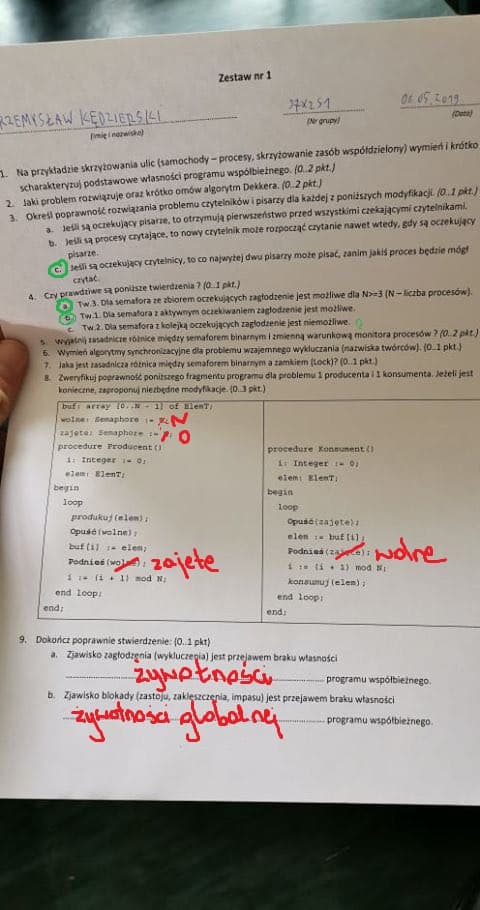 Zestaw nr 1
RZEMYSŁAW KĘDZIERSKI
37X251
06.05.2019
(imię i nazwisko)
(Nr grupy)
(Data)
1. Na przykładzie skrzyżowania ulic (samochody – procesy, skrzyżowanie zasób współdzielony) wymień i krótko
scharakteryzuj podstawowe własności programu współbieżnego. (0..2 pkt.)
2. Jaki problem rozwiązuje oraz krótko omów algorytm Dekkera. (0..2 pkt.)
3. Określ poprawność rozwiązania problemu czytelników i pisarzy dla każdej z poniższych modyfikacji. (0..1 pkt.)
a. Jeśli są oczekujący pisarze, to otrzymują pierwszeństwo przed wszystkimi czekającymi czytelnikami.
b. Jeśli są procesy czytające, to nowy czytelnik może rozpocząć czytanie nawet wtedy, gdy są oczekujący
pisarze.
c. Jeśli są oczekujący czytelnicy, to co najwyżej dwu pisarzy może pisać, zanim jakiś proces będzie mógł
czytać.
4. Czy prawdziwe są poniższe twierdzenia ? (0..1 pkt.)
a. Tw.3. Dla semafora ze zbiorem oczekujących zagłodzenie jest możliwe dla N>=3 (N – liczba procesów).
b. Tw.1. Dla semafora z aktywnym oczekiwaniem zagłodzenie jest możliwe.
c. Tw.2. Dla semafora z kolejką oczekujących zagłodzenie jest niemożliwe.
5. Wyjaśnij zasadnicze różnice między semaforem binarnym i zmienną warunkową monitora procesów ? (0..2 pkt.)
6. Wymień algorytmy synchronizacyjne dla problemu wzajemnego wykluczania (nazwiska twórców). (0..1 pkt.)
7. Jaka jest zasadnicza różnica między semaforem binarnym a zamkiem (Lock)? (0..1 pkt.)
8. Zweryfikuj poprawność poniższego fragmentu programu dla problemu 1 producenta i 1 konsumenta. Jeżeli jest
konieczne, zaproponuj niezbędne modyfikacje. (0..3 pkt.)
buf: array [0..N - 1] of ElemT;
wolne: Semaphore := N
zajete: Semaphore := 0
procedure Producent()
i: Integer := 0;
elem: ElemT;
begin
loop
produkuj(elem);
Opuść(wolne);
buf[i] := elem;
Podnieś(wolne); zajęte
i := (i + 1) mod N;
end loop;
end;
procedure Konsument()
i: Integer := 0;
elem: ElemT;
begin
loop
Opuść(zajete);
elem := buf[i];
Podnieś(zajęte); wolne
i := (i + 1) mod N;
konsumuj(elem);
end loop;
end;
9. Dokończ poprawnie stwierdzenie: (0..1 pkt)
a. Zjawisko zagłodzenia (wykluczenia) jest przejawem braku własności
żywotności programu współbieżnego.
b. Zjawisko blokady (zastoju, zakleszczenia, impasu) jest przejawem braku własności
żywotności globalnej programu współbieżnego.